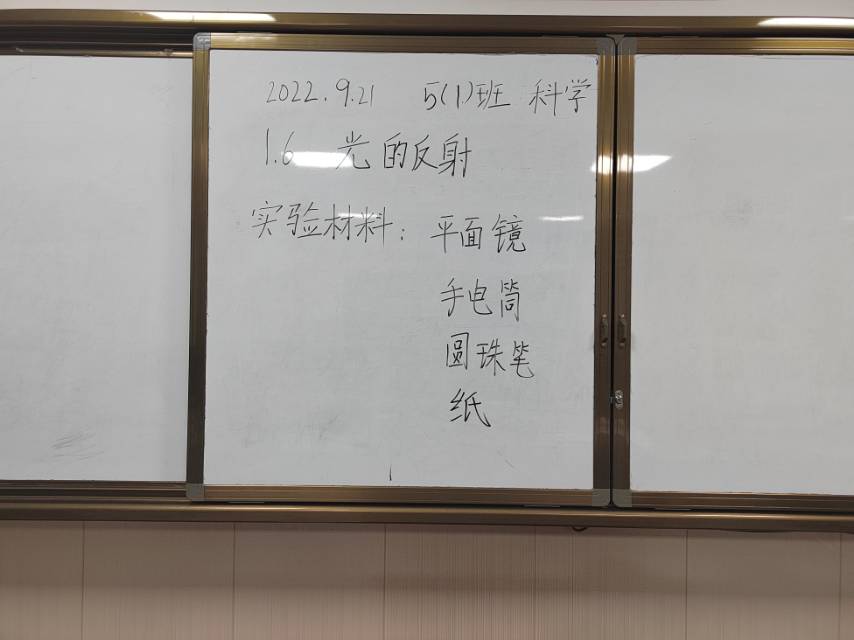 2022.9.21 5(1)班 科学
1.6 光的反射
实验材料：平面镜
手电筒
圆珠笔
纸